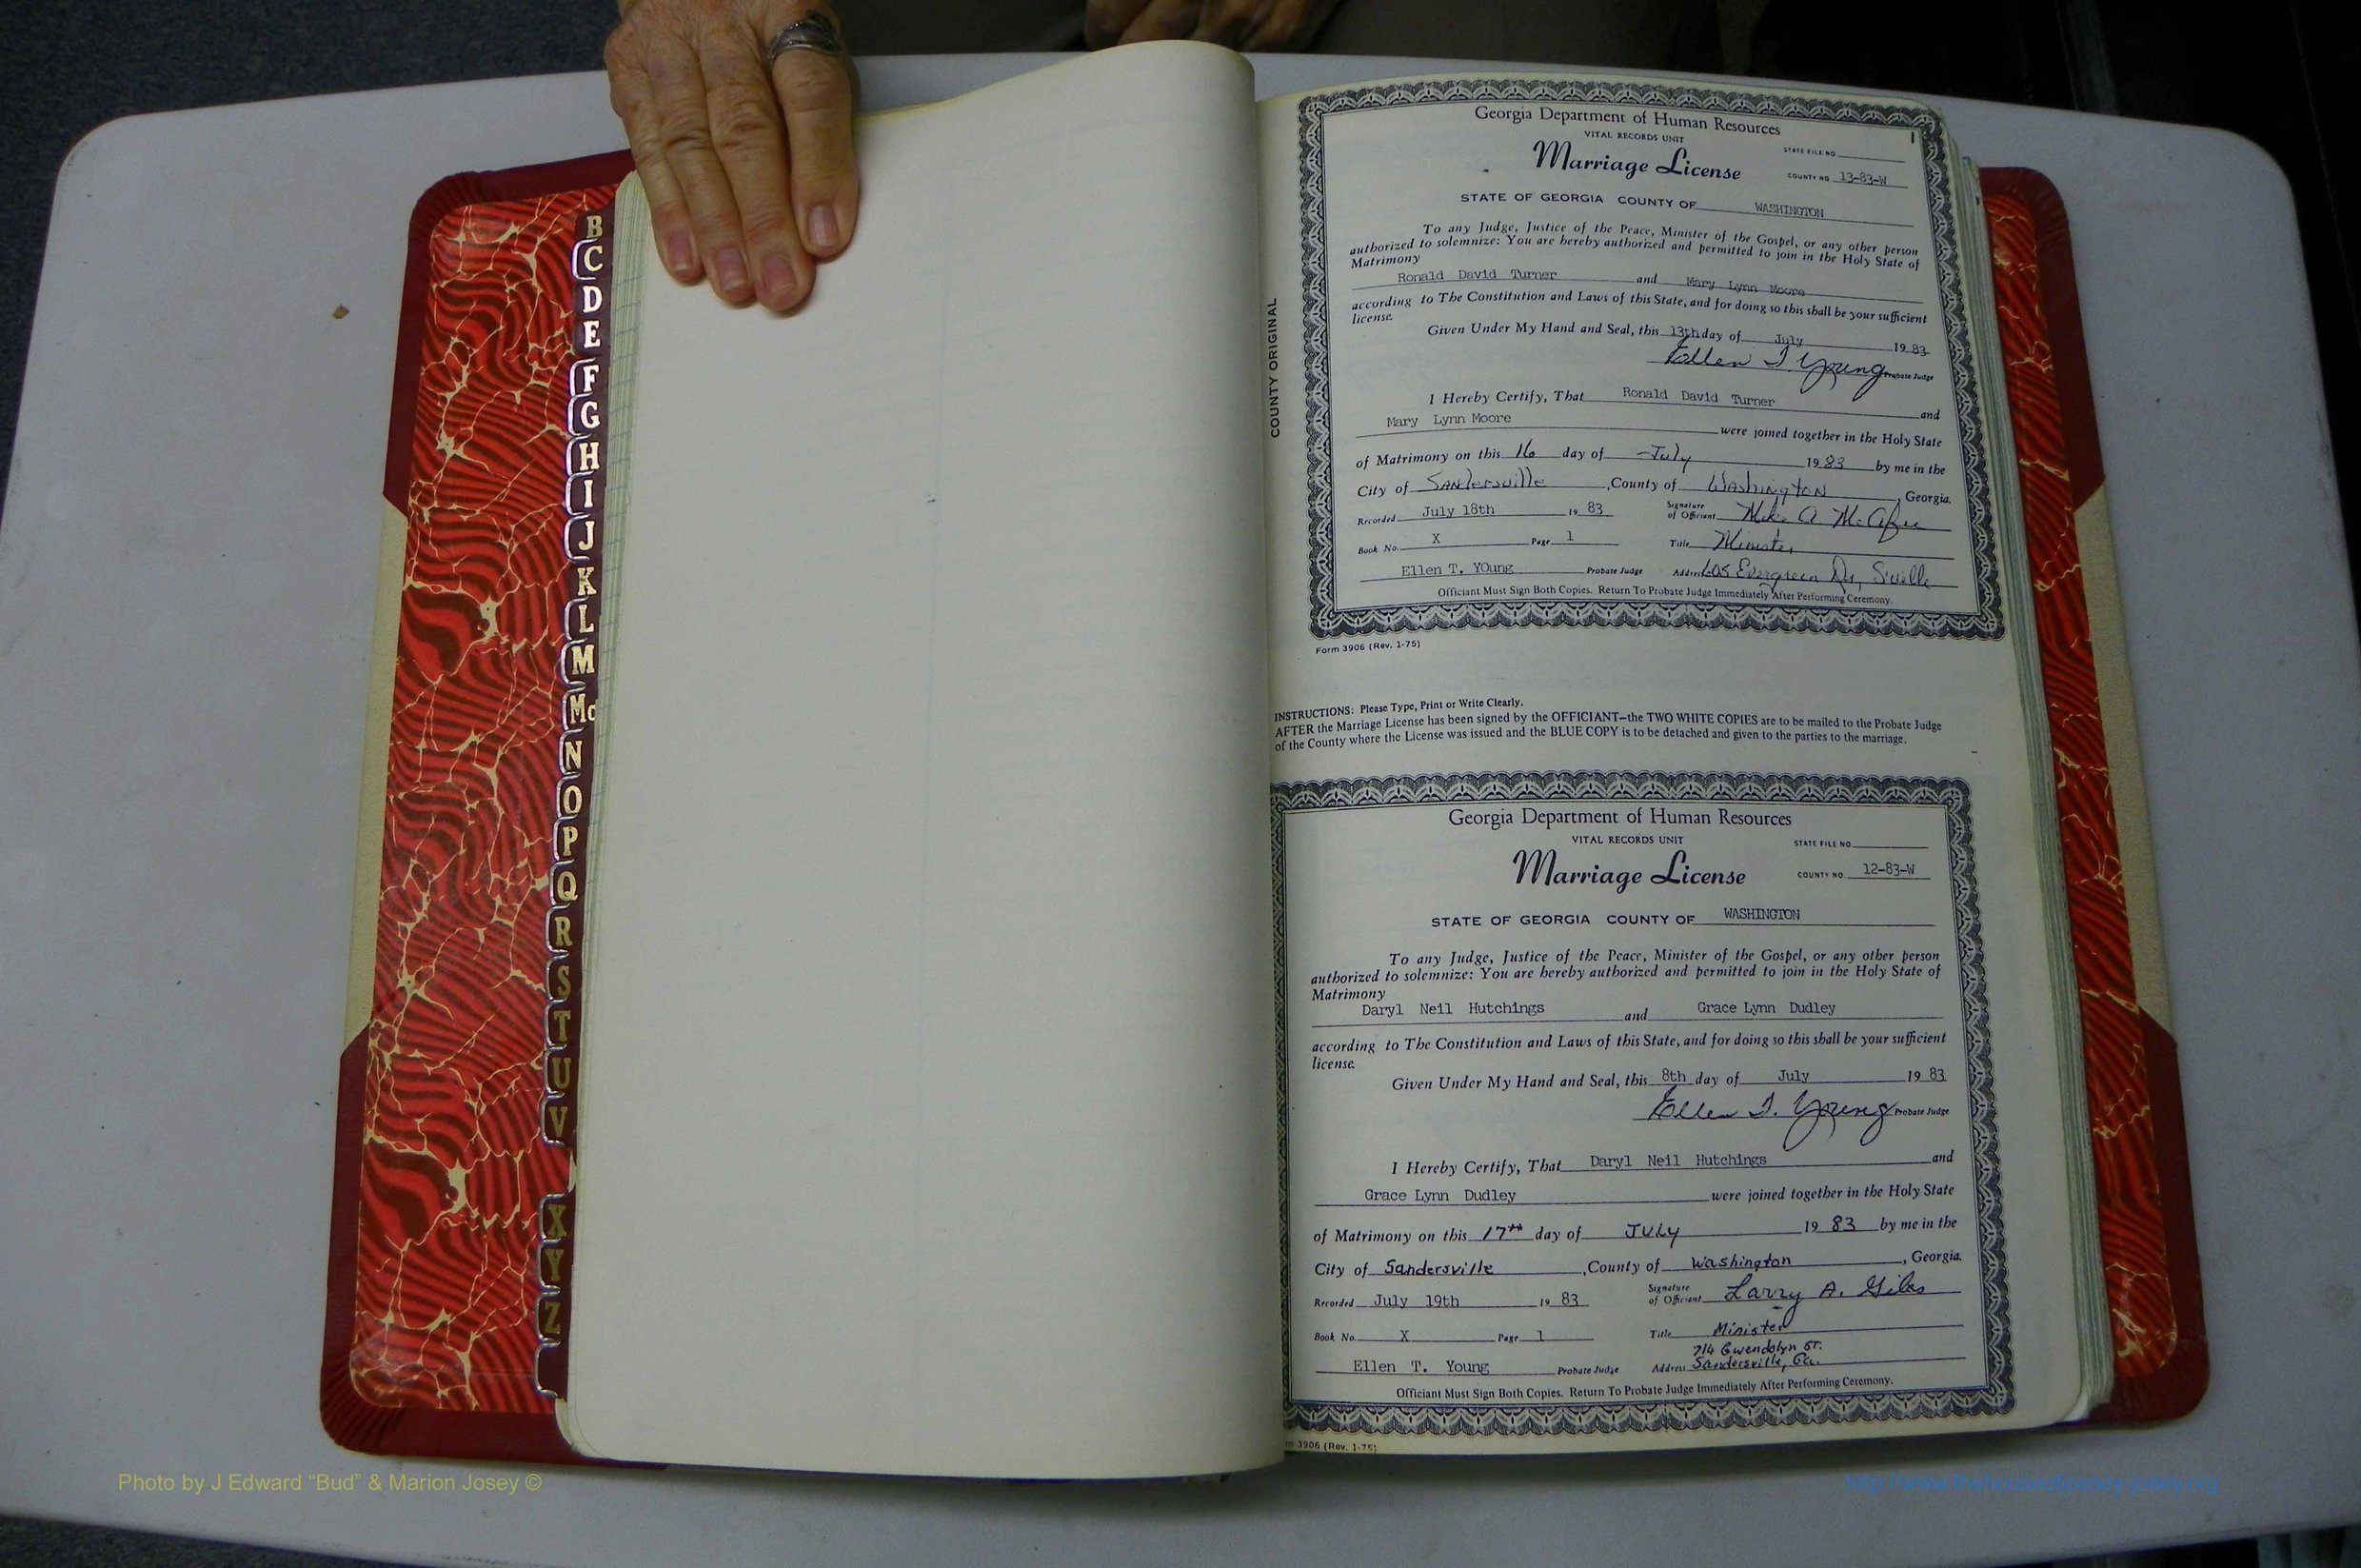 B
C
D
E
F
G
H
I
J
K
L
M
Mc
N
O
P
Q
R
S
T
U
V
X
Y
Z
COUNTY ORIGINAL
Georgia Department of Human Resources
1
VITAL RECORDS UNIT
STATE FILE NO.
Marriage License
COUNTY NO. 13-83-W
STATE OF GEORGIA COUNTY OF WASHINGTON
To any Judge, Justice of the Peace, Minister of the Gospel, or any other person
authorized to solemnize: You are hereby authorized and permitted to join in the Holy State of
Matrimony
Ronald David Turner and Mary Lynn Moore
according to The Constitution and Laws of this State, and for doing so this shall be your sufficient
license.
Given Under My Hand and Seal, this 13th day of July 19 83
Ellen T. Young Probate Judge
I Hereby Certify, That Ronald David Turner and
Mary Lynn Moore were joined together in the Holy State
of Matrimony on this 16 day of July 19 83 by me in the
City of Sandersville, County of Washington, Georgia.
Recorded July 18th 19 83 Signature of Officiant Mike A McAfee
Book No. X Page 1 Title Minister
Ellen T. YOung Probate Judge Address 605 Evergreen Dr, S'ville
Officiant Must Sign Both Copies. Return To Probate Judge Immediately After Performing Ceremony.
Form 3906 (Rev. 1-75)
INSTRUCTIONS: Please Type, Print or Write Clearly.
AFTER the Marriage License has been signed by the OFFICIANT—the TWO WHITE COPIES are to be mailed to the Probate Judge
of the County where the License was issued and the BLUE COPY is to be detached and given to the parties to the marriage.
Georgia Department of Human Resources
VITAL RECORDS UNIT
STATE FILE NO.
Marriage License
COUNTY NO. 12-83-W
STATE OF GEORGIA COUNTY OF WASHINGTON
To any Judge, Justice of the Peace, Minister of the Gospel, or any other person
authorized to solemnize: You are hereby authorized and permitted to join in the Holy State of
Matrimony
Daryl Neil Hutchings and Grace Lynn Dudley
according to The Constitution and Laws of this State, and for doing so this shall be your sufficient
license.
Given Under My Hand and Seal, this 8th day of July 19 83
Ellen T. Young Probate Judge
I Hereby Certify, That Daryl Neil Hutchings and
Grace Lynn Dudley were joined together in the Holy State
of Matrimony on this 17th day of JULY 19 83 by me in the
City of Sandersville, County of Washington, Georgia.
Recorded July 19th 19 83 Signature of Officiant Larry A. Giles
Book No. X Page 1 Title Minister
714 Gwendolyn St.
Ellen T. Young Probate Judge Address Sandersville, Ga.
Officiant Must Sign Both Copies. Return To Probate Judge Immediately After Performing Ceremony.
m 3906 (Rev. 1-75)
Photo by J Edward “Bud” & Marion Josey ©
http://www.thehouseofjossey-josey.org